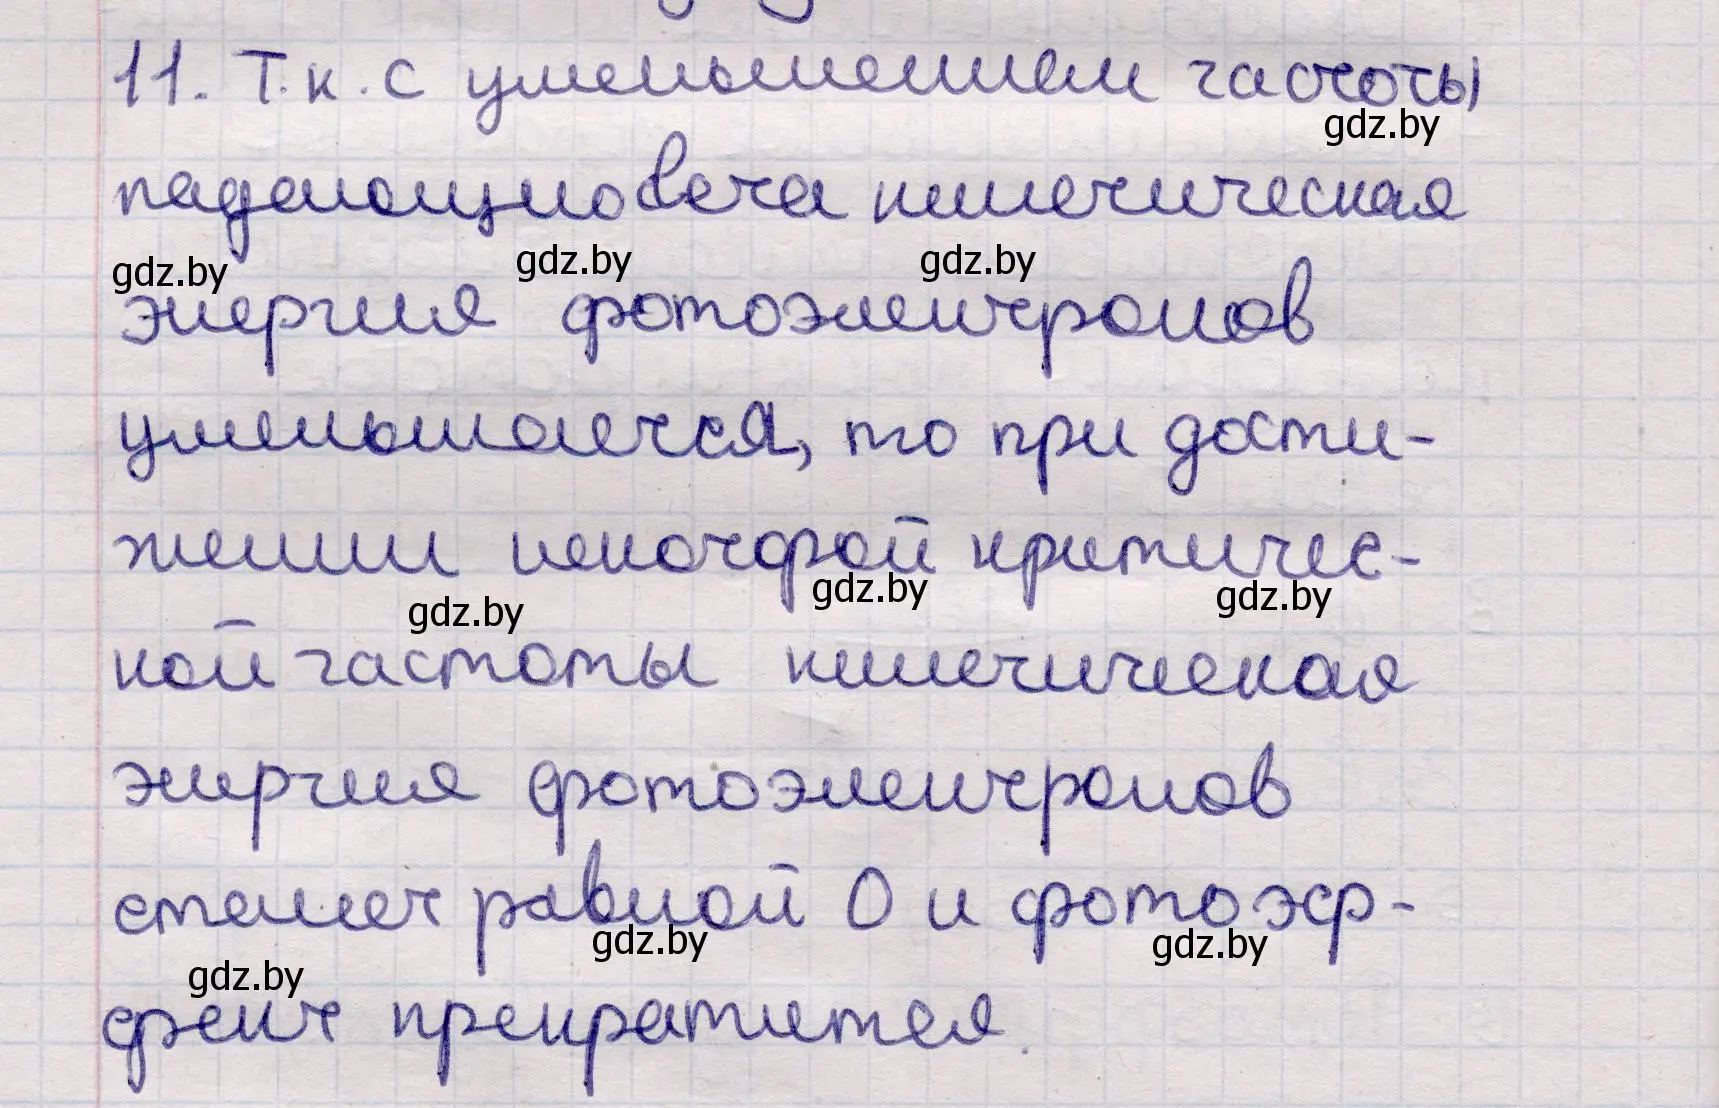 11. Т.к. с уменьшением частоты
gdz.by
падающего света кинетическая
gdz.by gdz.by gdz.by
энергия фотоэлектронов
уменьшается, то при дости-
жении некоторой критичес-
gdz.by gdz.by gdz.by
кой частоты кинетическая
энергия фотоэлектронов
станет равной 0 и фотоэф-
gdz.by gdz.by gdz.by
фект прекратится.